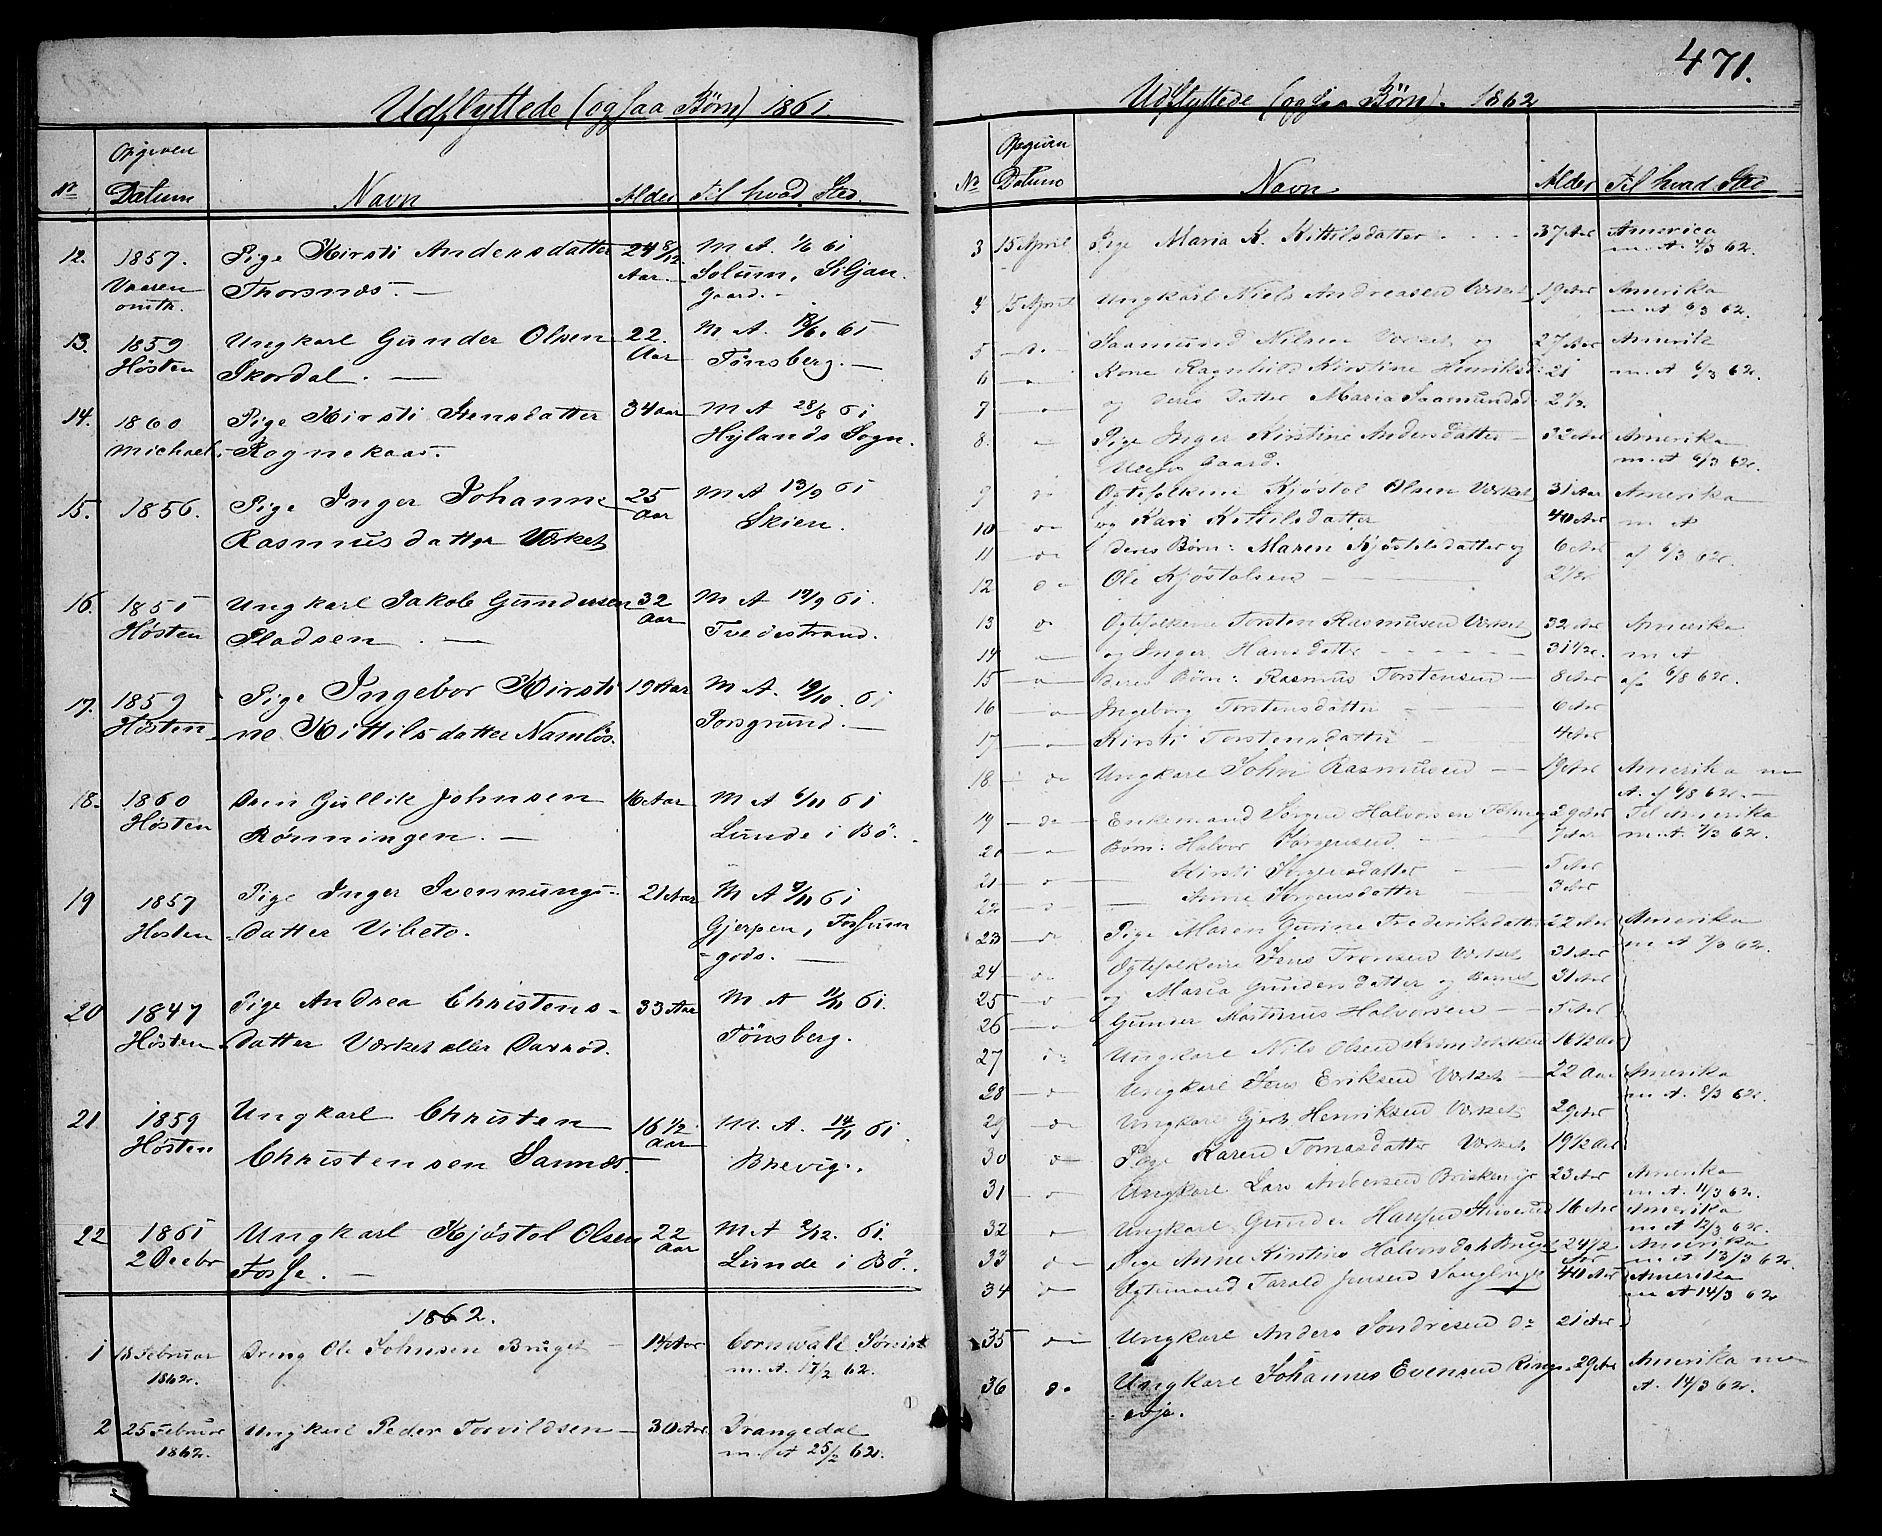 Udflyttede (ogsaa Børn) 1861.
Opgiven
No Datum Navn Alder Til hvad Sted.
12. 1857. Pige Kirsti Andersdatter 24 8/12 M A. 61
Vaaren Thorsnæs. — Aar. Solum, Siljan.
omtr. Gaard. —
13. 1859 Ungkarl Gunder Olsen 22. M A. 61
Høsten Skordal. — Aar Tønsberg. —
14. 1860 Pige Kirsti Stensdatter 34 aar M A 28/8 61
Michael. Rognekaas. Hylands Sogn.
15. 1856. Pige Inger Johanne 25 M A 13/9 61
Rasmusdatter Værket Aar Skien.
16. 1851 Ungkarl Jakob Gundersen 32 M A 61.
Høsten Pladsen. — Aar Tvedestrand.
17. 1859 Pige Ingebor Kirsti 19 Aar M A. 61
Høsten ne Kittilsdatter Namløs. Porsgrund. —
18. 1860 Gullik Johnsen 16 Aar M A 6/11 61
Høsten Rönningen. — Lunde i Bö.
19 1857 Pige Inger Svennungs- 21 Aar M A 9/11 61
Høsten datter Vibeto. Gjerpen, Fossum
gods. —
20 1847 Pige Andrea Christens- 33 Aar M A 11/11 61.
Høsten datter Værket eller Tønsberg.
21 1859 Ungkarl Christen 16 1/2 M. A. 14/11 61.
Høsten Christensen Sannes. Aar Brevig.
22 1861 Ungkarl Kjöstol Olsen 22 M A 2/12. 61.
2 Decbr Fosse. — Aar Lunde i Bö.
1862.
1 18 Februar Dreng Ole Johnsen Bruget — 14 Aar Cornwall
1862. m. A. 17/2 62.
2 25 Februar Ungkarl Peder Torvildsen — 30 Aar Drangedal
1862. m. A 25/2 62.
471.
Udflyttede (ogsaa Børn). 1862
Opgiven
No Datum Navn Alder Til hvad Sted
3 15 April Pige Maria K. Kittilsdatter 37 Aar America
m. A. 4/3 62.
4 15 April Ungkarl Niels Andreasen Værket 19 Aar Amerika
m A 6/3 62.
5 Saamund Nilsen Værket og 27 Aar Amerik
6 Kone Ragnhild Kirstine Henriksd. 21 m. A 6/3 62.
7 og deres Datter Maria Saamundsd. 2
8. Pige Inger Kirstine Andersdatter — 32 Aar Amerika
Gaard. m. A 6/3 62.
9 do Ogtefolkene Kjöstol Olsen Værket 31 Aar Amerika
10 do og Kari Kittilsdatter 40 Aar m A
11 do deres Børn: Maren Kjöstolsdatter og 6 Aar af 6/3 62.
12 do Ole Kjöstolsen — 2
13 do Ogtefolkene Torsten Rasmusen Værket 32 Aar Amerika
14 og Inger Hansdatter 31 m A
15 deres Børn: Rasmus Torstensen — 8 Aar af 6/8 62.
16 Ingeborg Torstensdatter 6 Aar
17 Kirsti Torstensdatter 4 Aar
18 do Ungkarl John Rasmusen — 19 Aar Amerika m
A. af 6/8 62. —
19 do Enkemand Jörgen Halvorsen 29 Aar Til Amerika
20 Børn: Halvor Jörgensen 7 Aar m. A. 7/3 62.
21 Kirsti Jörgensdatter 5 Aar
22 — Anne Jörgensdatter 3 Aar
23 do Pige Maren Gurine Frederiksdatter 22 Aar Amerika
24 do Ogtefolkene Jens Tronsen Værket 31 Aar m A 7/3 62.
25 og Maria Gundersdatter og Barnet 31 Aar
26 Gunder Martinus Halvorsen — 5 Aar
27 do Ungkarl Nils Olsen 16 1/2 Aar
28 do Ungkarl Jens Eriksen Værket — 22 Aar Amerika
29 do Ungkarl Gjert Henriksen Værket 29 Aar m A. 8/3 62.
30 do Pige Karen Tomasdatter Værket 19 1/2 Aar
31 Ungkarl Lars Andersen 23 Aar Amerika
m. A. 11/3 62.
32 Ungkarl Gunder Hansen 16 Aar Amerika
m A 12/3 62.
33 do Pige Anne Kirstine Halvorsdatr 24 1/2 Amerika
Aar m A 13/3 62.
34 do Ogtemand Tarald Jensen 40 Aar Amerika
m A 14/3 62
35 do Ungkarl Anders Sondresen do 21 Aar
36 do Ungkarl Johannes Evensen Rings- 29 Aar Amerika m
evje. A. 14/3 62.